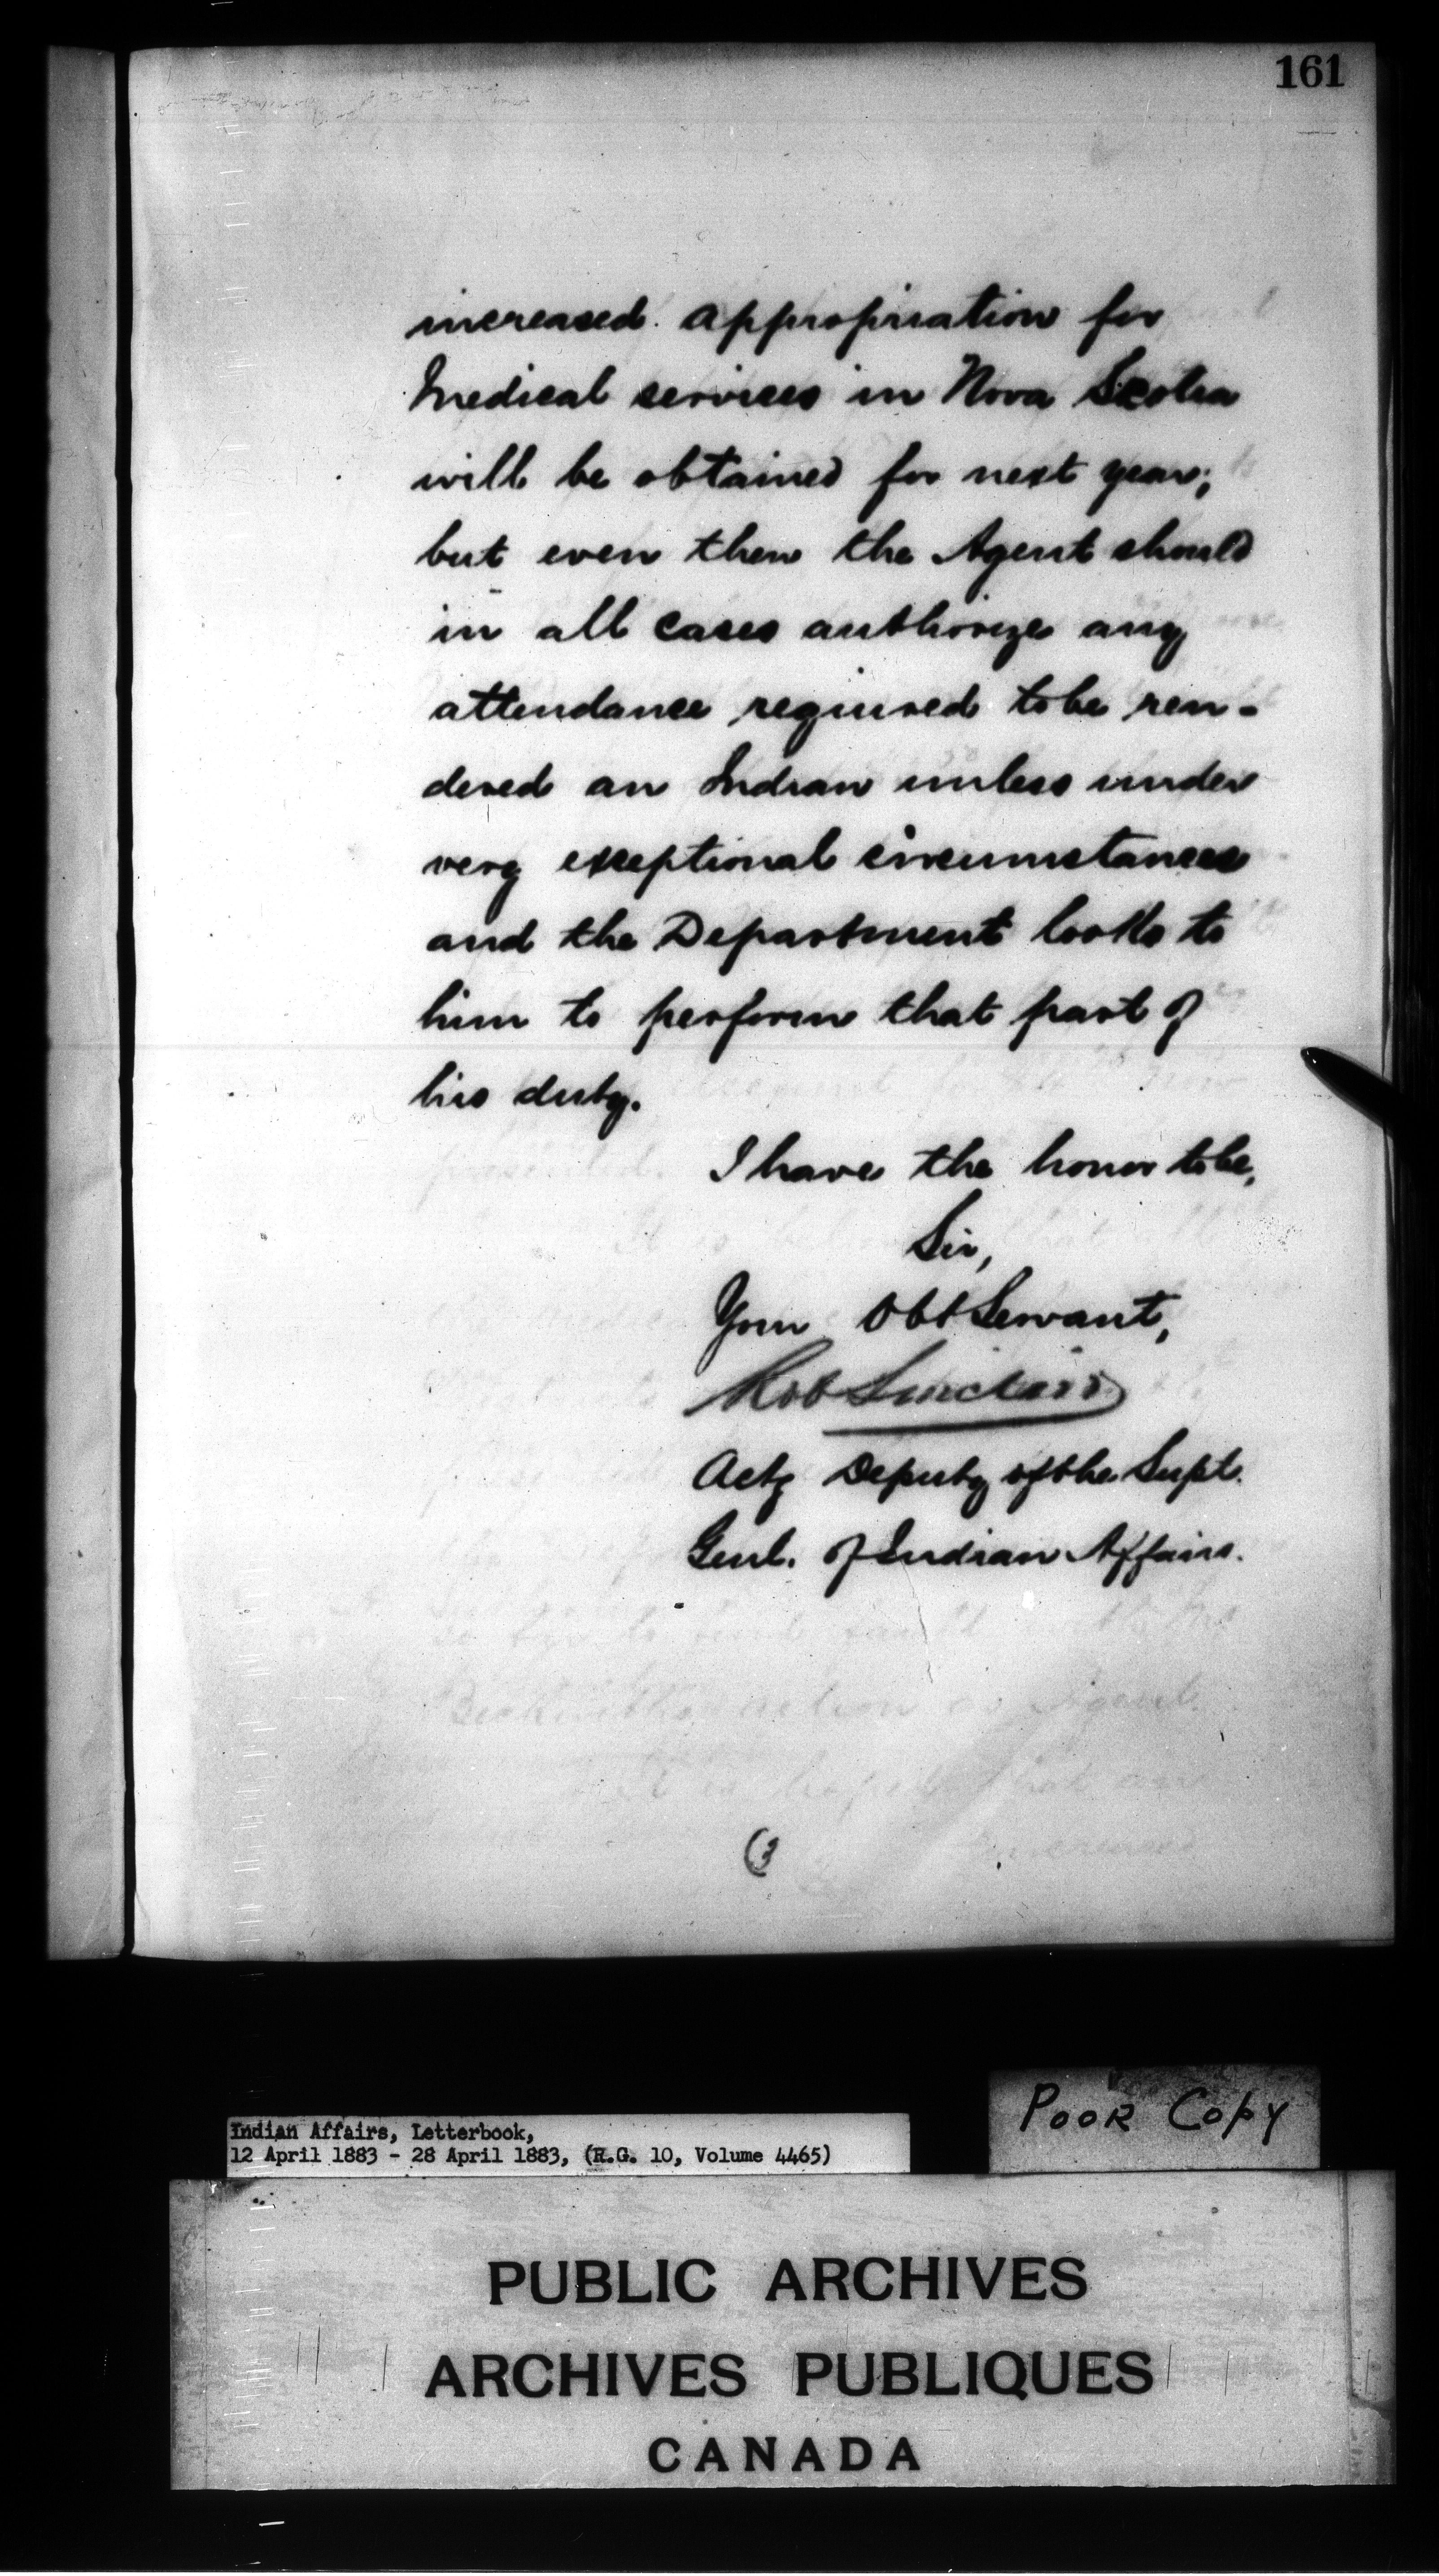 161
increased appropriation for
Medical services in Nova Scotia
will be obtained for next year;
but even then the Agent should
in all cases authorize any
attendance required to be ren-
dered an Indian unless under
very exceptional circumstances
and the Department looks to
him to perform that part of
his duty.
I have the honor to be,
Sir,
Your Obt Servant,
Rob Sinclair
Actg Deputy of the Supt.
Genl. of Indian Affairs.
(3
Poor Copy
Indian Affairs, Letterbook,
12 April 1883 - 28 April 1883, (R.G. 10, Volume 4465)
PUBLIC ARCHIVES
ARCHIVES PUBLIQUES
CANADA